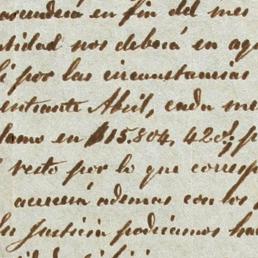 ascenderá en fin del mes
ntidad nos deberá en ag
i por las circunstancias
entrante Abril, cada me
lamo en $15.804, 420
resto por lo que corresp
acercerá ademas con los
Su Justicia podriamos ha